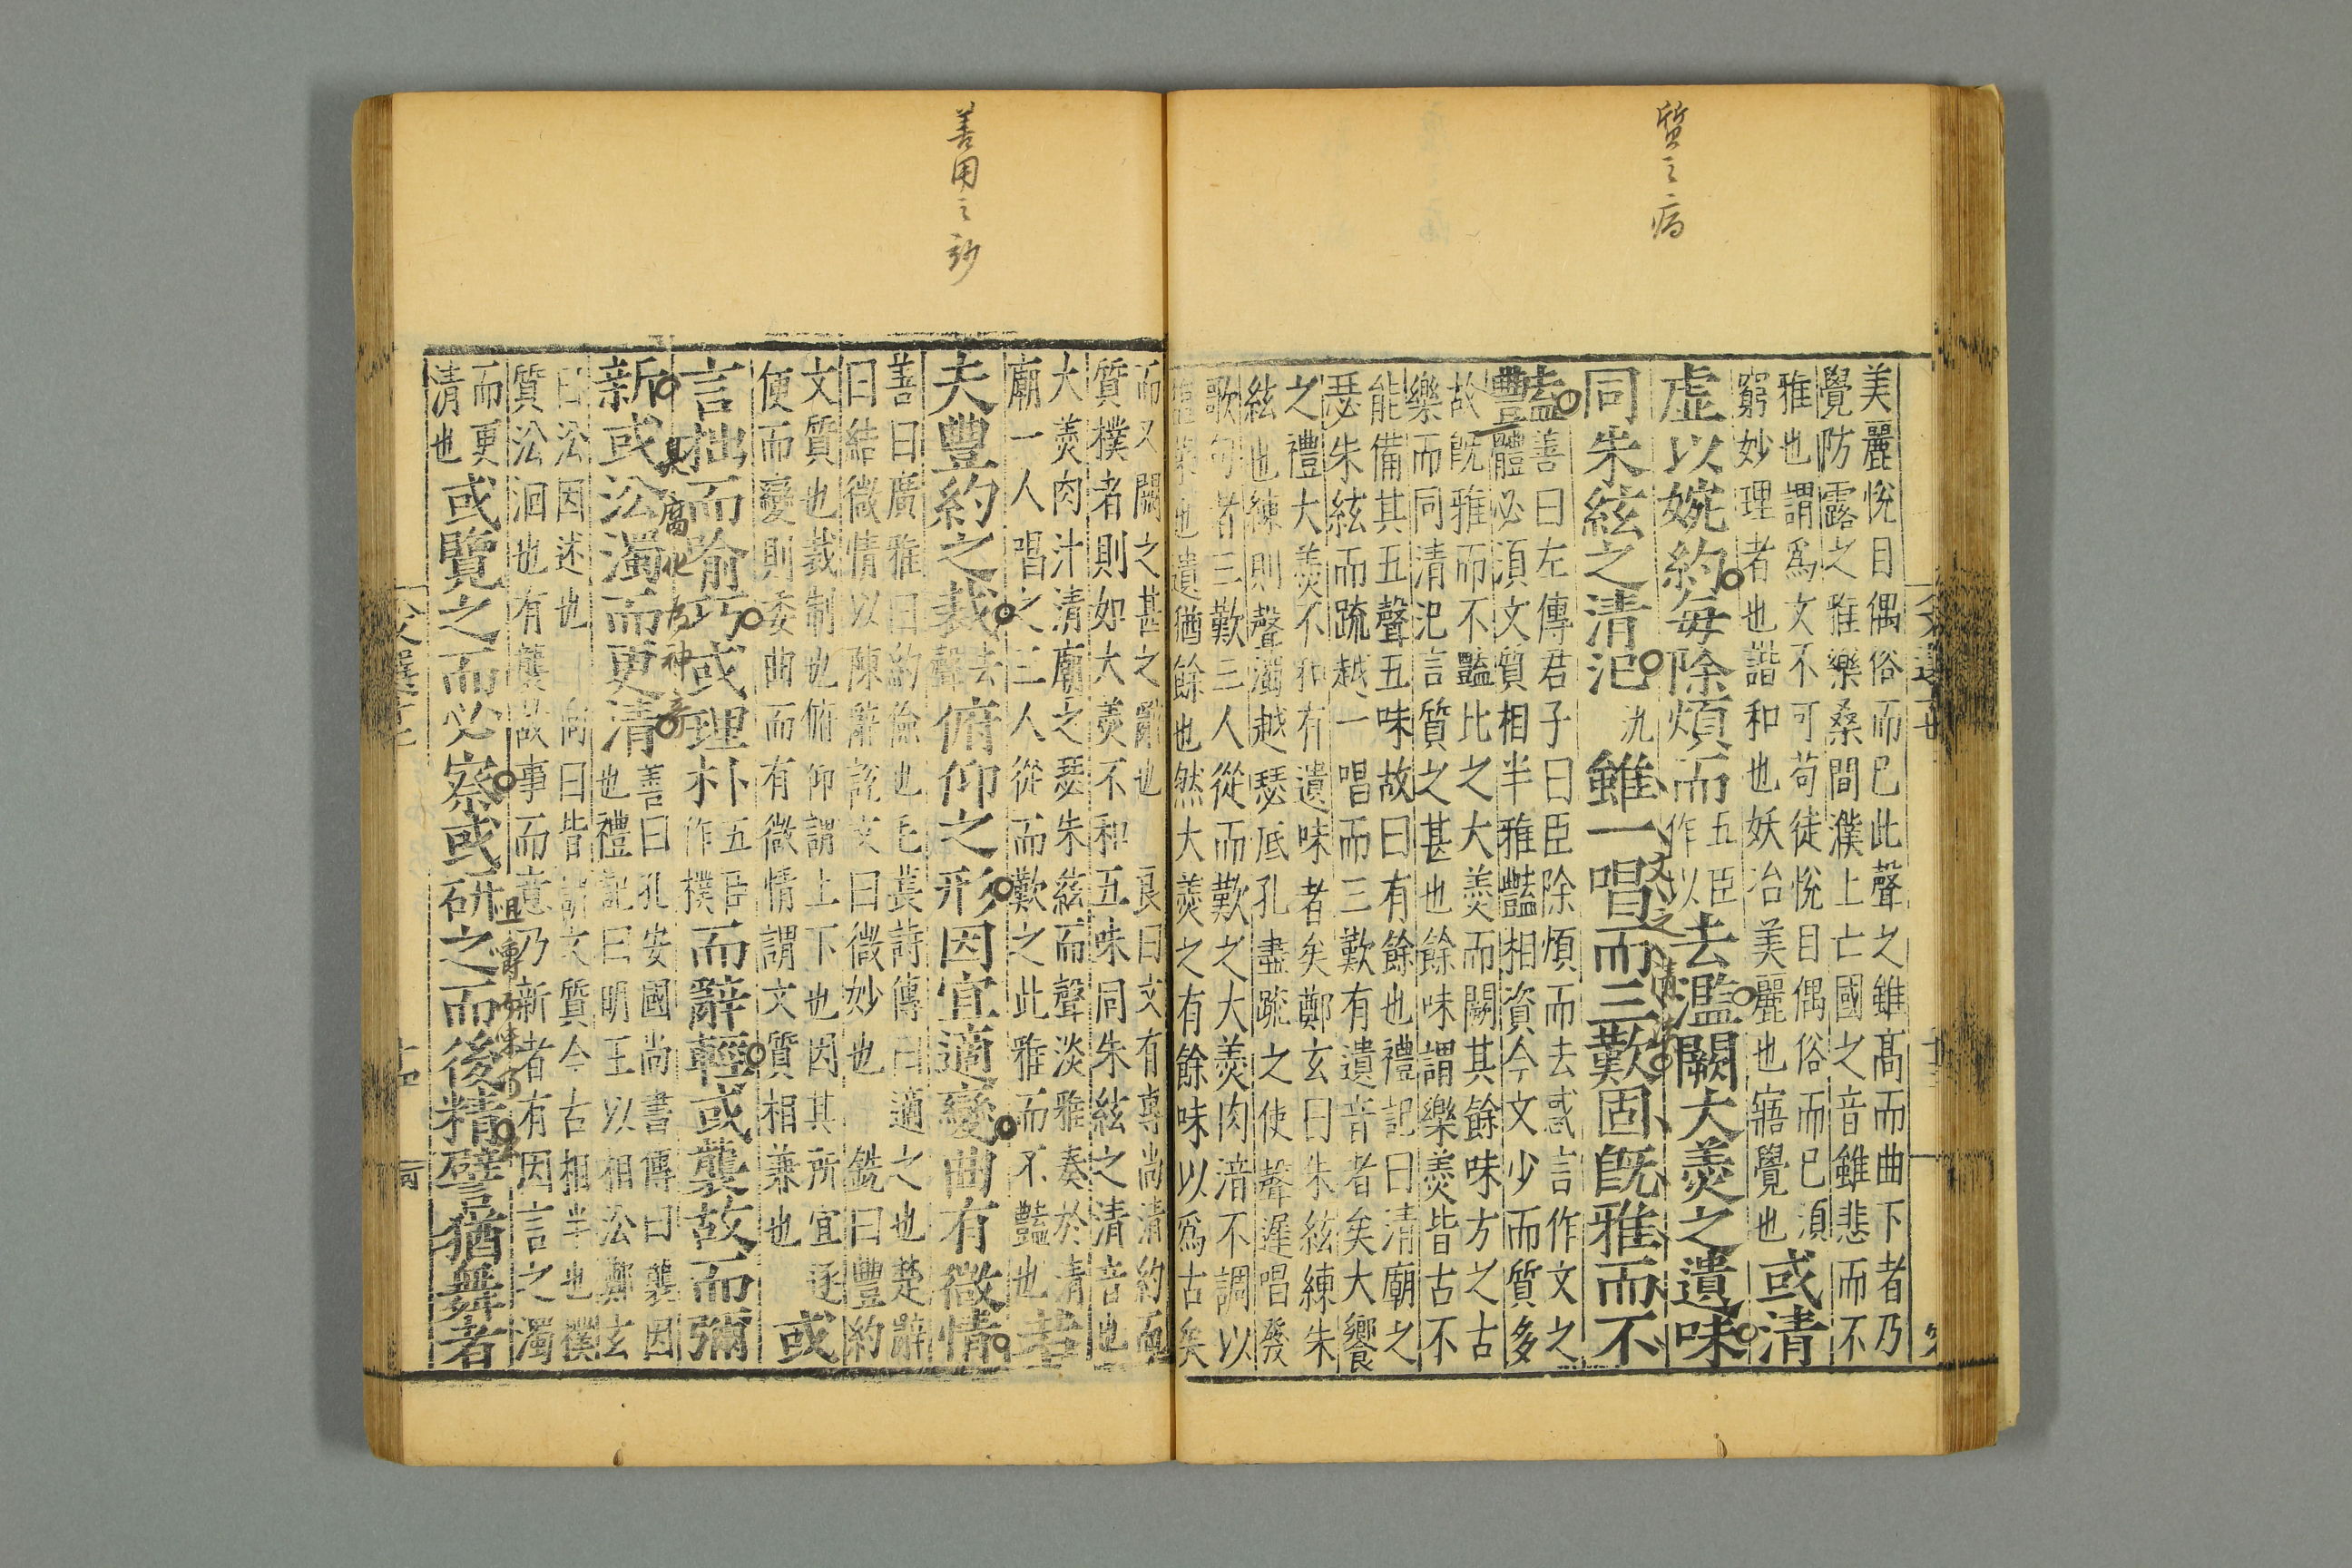 質之病
美麗悅目偶俗而已此聲之雖髙而曲下者乃
覺防露之雅樂桑間濮上亡國之音雖悲而不
雅也謂爲文不可苟徒悅目偶俗而已湏
窮妙理者也諧和也妖冶美麗也寤覺也
或清
虛以婉約每除煩而
五臣
作以
去濫闕大羮之遺味
同朱絃之清汜
雖一唱而三歎固旣雅而不
豔
善曰左傳君子曰臣除煩而去惑言作文之
體必湏文質相半雅豔相資今文少而質多
故旣雅而不豔比之大羮而闕其餘味方之古
樂而同清汜言質之甚也餘味謂樂羮皆古不
能備其五聲五味故曰有餘也禮記曰清廟之
瑟朱絃而疏越一唱而三歎有遺音者矣大饗
之禮大羮不和有遺味者矣鄭玄曰朱絃練朱
絃也練則聲濁越瑟底孔畫疏之使聲遲唱發
歌句者三歎三人從而歎之大羮肉湆不調以
也遺猶餘也然大羮之有餘味以爲古矣
善用之妙
而又闕之甚之
也
良曰文有專尚清約
質樸者則如大羮不和五味同朱絃之清音也
大羮肉汁清廟之瑟朱絃而聲淡雅奏於清
廟一人唱之三人從而歎之此雅而不豔也
若
夫豐約之裁
去
聲
俯仰之形因宜適變曲有微情
善曰廣雅曰約儉也毛萇詩傳曰適之也楚辭
曰結微情以陳辭說文曰微妙也
銑曰豐約
文質也裁制也俯仰謂上下也因其所宜逐
便而變則委曲而有微情謂文質相兼也
或
言拙而喻巧或理朴
五臣
作樸
而辭輕或襲故而彌
臭腐化為神奇
新或㳂濁而更清
善曰孔安國尚書傳曰襲因
也禮記曰明王以相㳂鄭玄
曰㳂因述也
向曰皆謂文質今古相半也樸
質㳂洄也有襲故事而意乃新者有因言之濁
而更
清也
或覽之而必察或研之而後精譬猶舞者